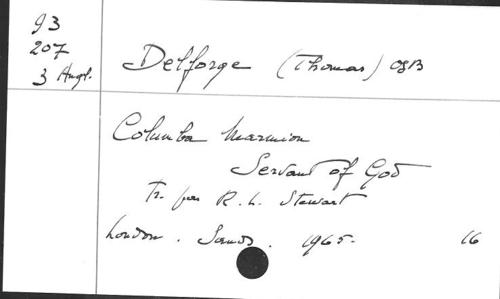 93
207
3 Angl.
Delforge (Thomas) OSB
Columba Marmion
Servant of God
Tr. par R. L. Stewart
London. Sands. 1965. 16